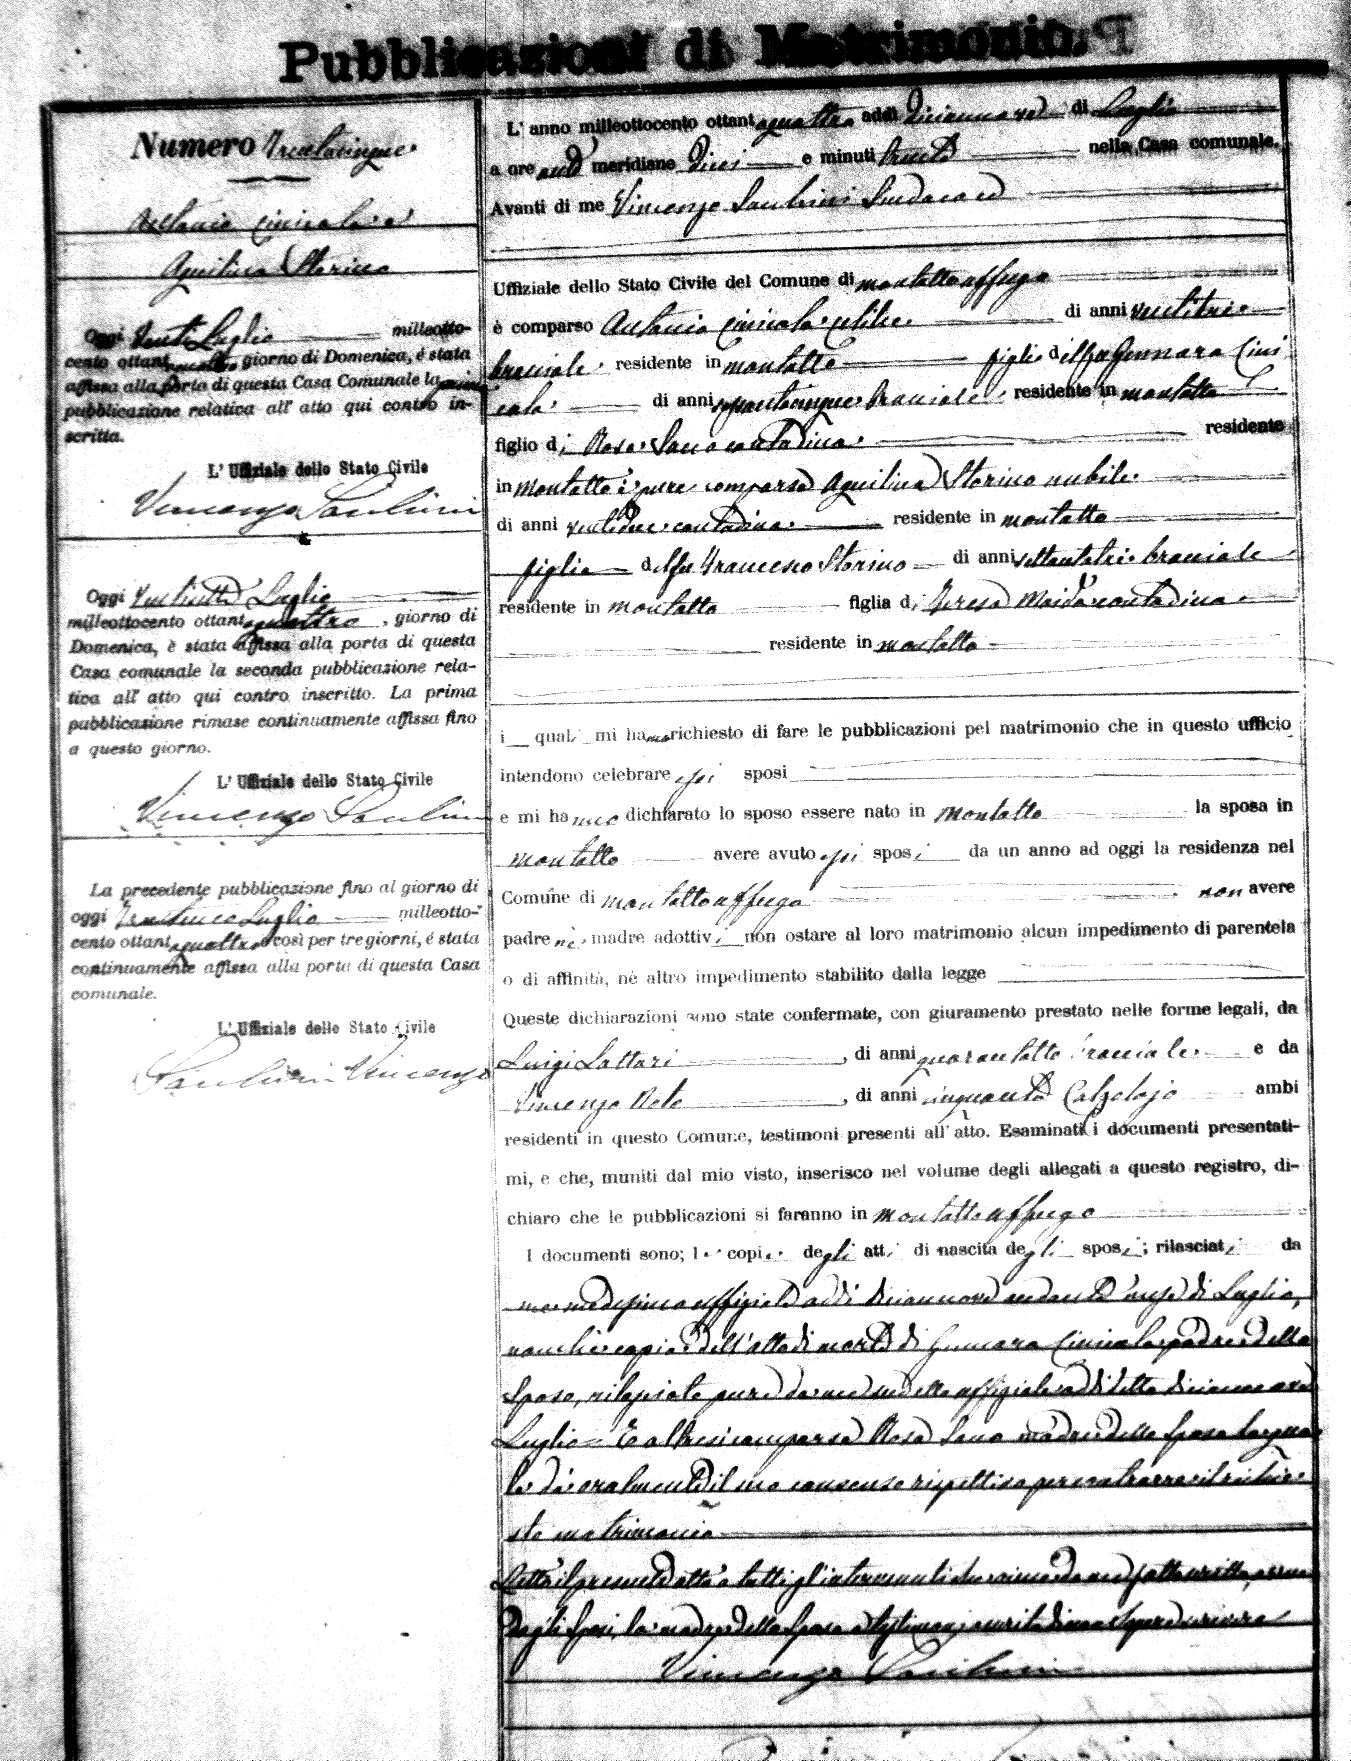 Pubblicazioni di Matrimonio.
Numero Trentacinque
Antonio Cinicola e
Aquilina Storino
Oggi Venti Luglio milleotto-
cento ottantaquattro giorno di Domenica, é stata
affissa alla porta di questa Casa Comunale la prima
pubblicazione relativa all' atto qui contro in-
scritta.
L' Uffiziale dello Stato Civile
Vincenzo
Oggi Ventisette Luglio
milleottocento ottantaquattro, giorno di
Domenica, è stata affissa alla porta di questa
Casa comunale la seconda pubblicazione rela-
tiva all' atto qui contro inscritto. La prima
pubblicazione rimase continuamente affissa fino
a questo giorno.
L' Uffiziale dello Stato Civile
Vincenzo
La precedente pubblicazione fino al giorno di
oggi Luglio milleotto-
cento ottantaquattro e così per tre giorni, é stata
continuamente affissa alla porta di questa Casa
comunale.
L' Uffiziale dello Stato Civile
Vincenzo
L' anno milleottocento ottantaquattro addì diciannove di Luglio
a ore anti meridiane dieci e minuti trenta nella Casa comunale.
Avanti di me Vincenzo Sindaco ed
Uffiziale dello Stato Civile del Comune di Montalto Uffugo
è comparso Antonio Cinicola celibe di anni ventitre
bracciale residente in Montalto figlio del fu Gennaro Cini
cola di anni bracciale residente in Montalto
figlio di Rosa Sano contadina residente
in Montalto è pure comparsa Aquilina Storino nubile
di anni ventidue contadina residente in Montalto
figlia del fu Francesco Storino di anni settantatre bracciale
residente in Montalto figlia di Teresa Maida contadina
residente in Montalto
i quali mi hanno richiesto di fare le pubblicazioni pel matrimonio che in questo ufficio
intendono celebrare essi sposi
e mi hanno dichiarato lo sposo essere nato in Montalto la sposa in
Montalto avere avuto essi sposi da un anno ad oggi la residenza nel
Comune di Montalto Uffugo non avere
padre nè madre adottivi non ostare al loro matrimonio alcun impedimento di parentela
o di affinità, nè altro impedimento stabilito dalla legge
Queste dichiarazioni sono state confermate, con giuramento prestato nelle forme legali, da
Luigi Lattari, di anni quarantotto bracciale e da
Vincenzo, di anni cinquanta Calzolajo ambi
residenti in questo Comune, testimoni presenti all' atto. Esaminati i documenti presentati-
mi, e che, muniti dal mio visto, inserisco nel volume degli allegati a questo registro, di-
chiaro che le pubblicazioni si faranno in Montalto Uffugo
I documenti sono; le copie degli atti di nascita degli sposi; rilasciati da
me medesimo uffiziale addì diciannove andante mese di Luglio,
nonchè copia dell'atto di morte di Gennaro Cinicola padre dello
Sposo, rilasciata pure da me sudetto uffiziale addì detto diciannove
Luglio = E altresì comparsa Rosa Sano madre dello sposo la qua
le dà oralmente il suo consenso rispettivo per contrarre il richie
sto matrimonio
Letto il presente atto a tutti gl'intervenuti che viene da me sottoscritto,
dagli sposi, la madre dello sposo e testimoni scrivere
Vincenzo